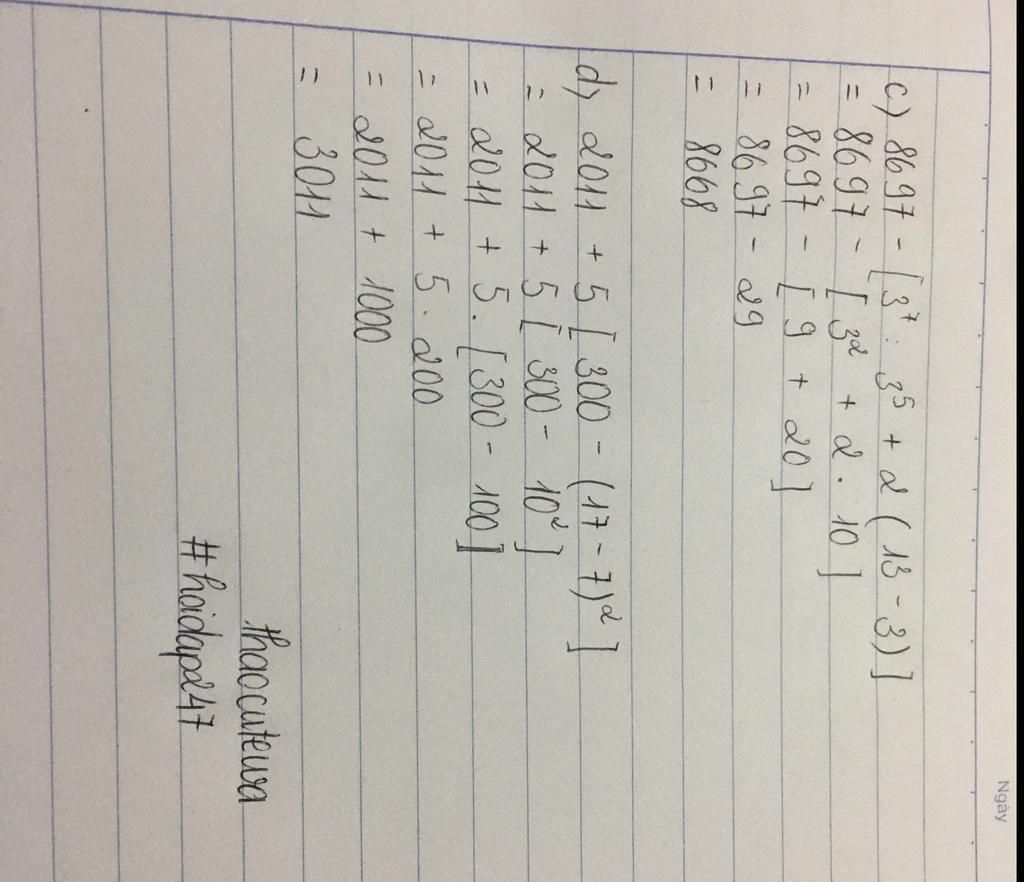 Ngày
c) 8697 - [3⁷ : 3⁵ + 2 (13 - 3)]
= 8697 - [3² + 2 . 10]
= 8697 - [9 + 20]
= 8697 - 29
= 8668
d) 2011 + 5 [300 - (17 - 7)²]
= 2011 + 5 [300 - 10²]
= 2011 + 5. [300 - 100]
= 2011 + 5 . 200
= 2011 + 1000
= 3011
thaocuteura
#hoidap247